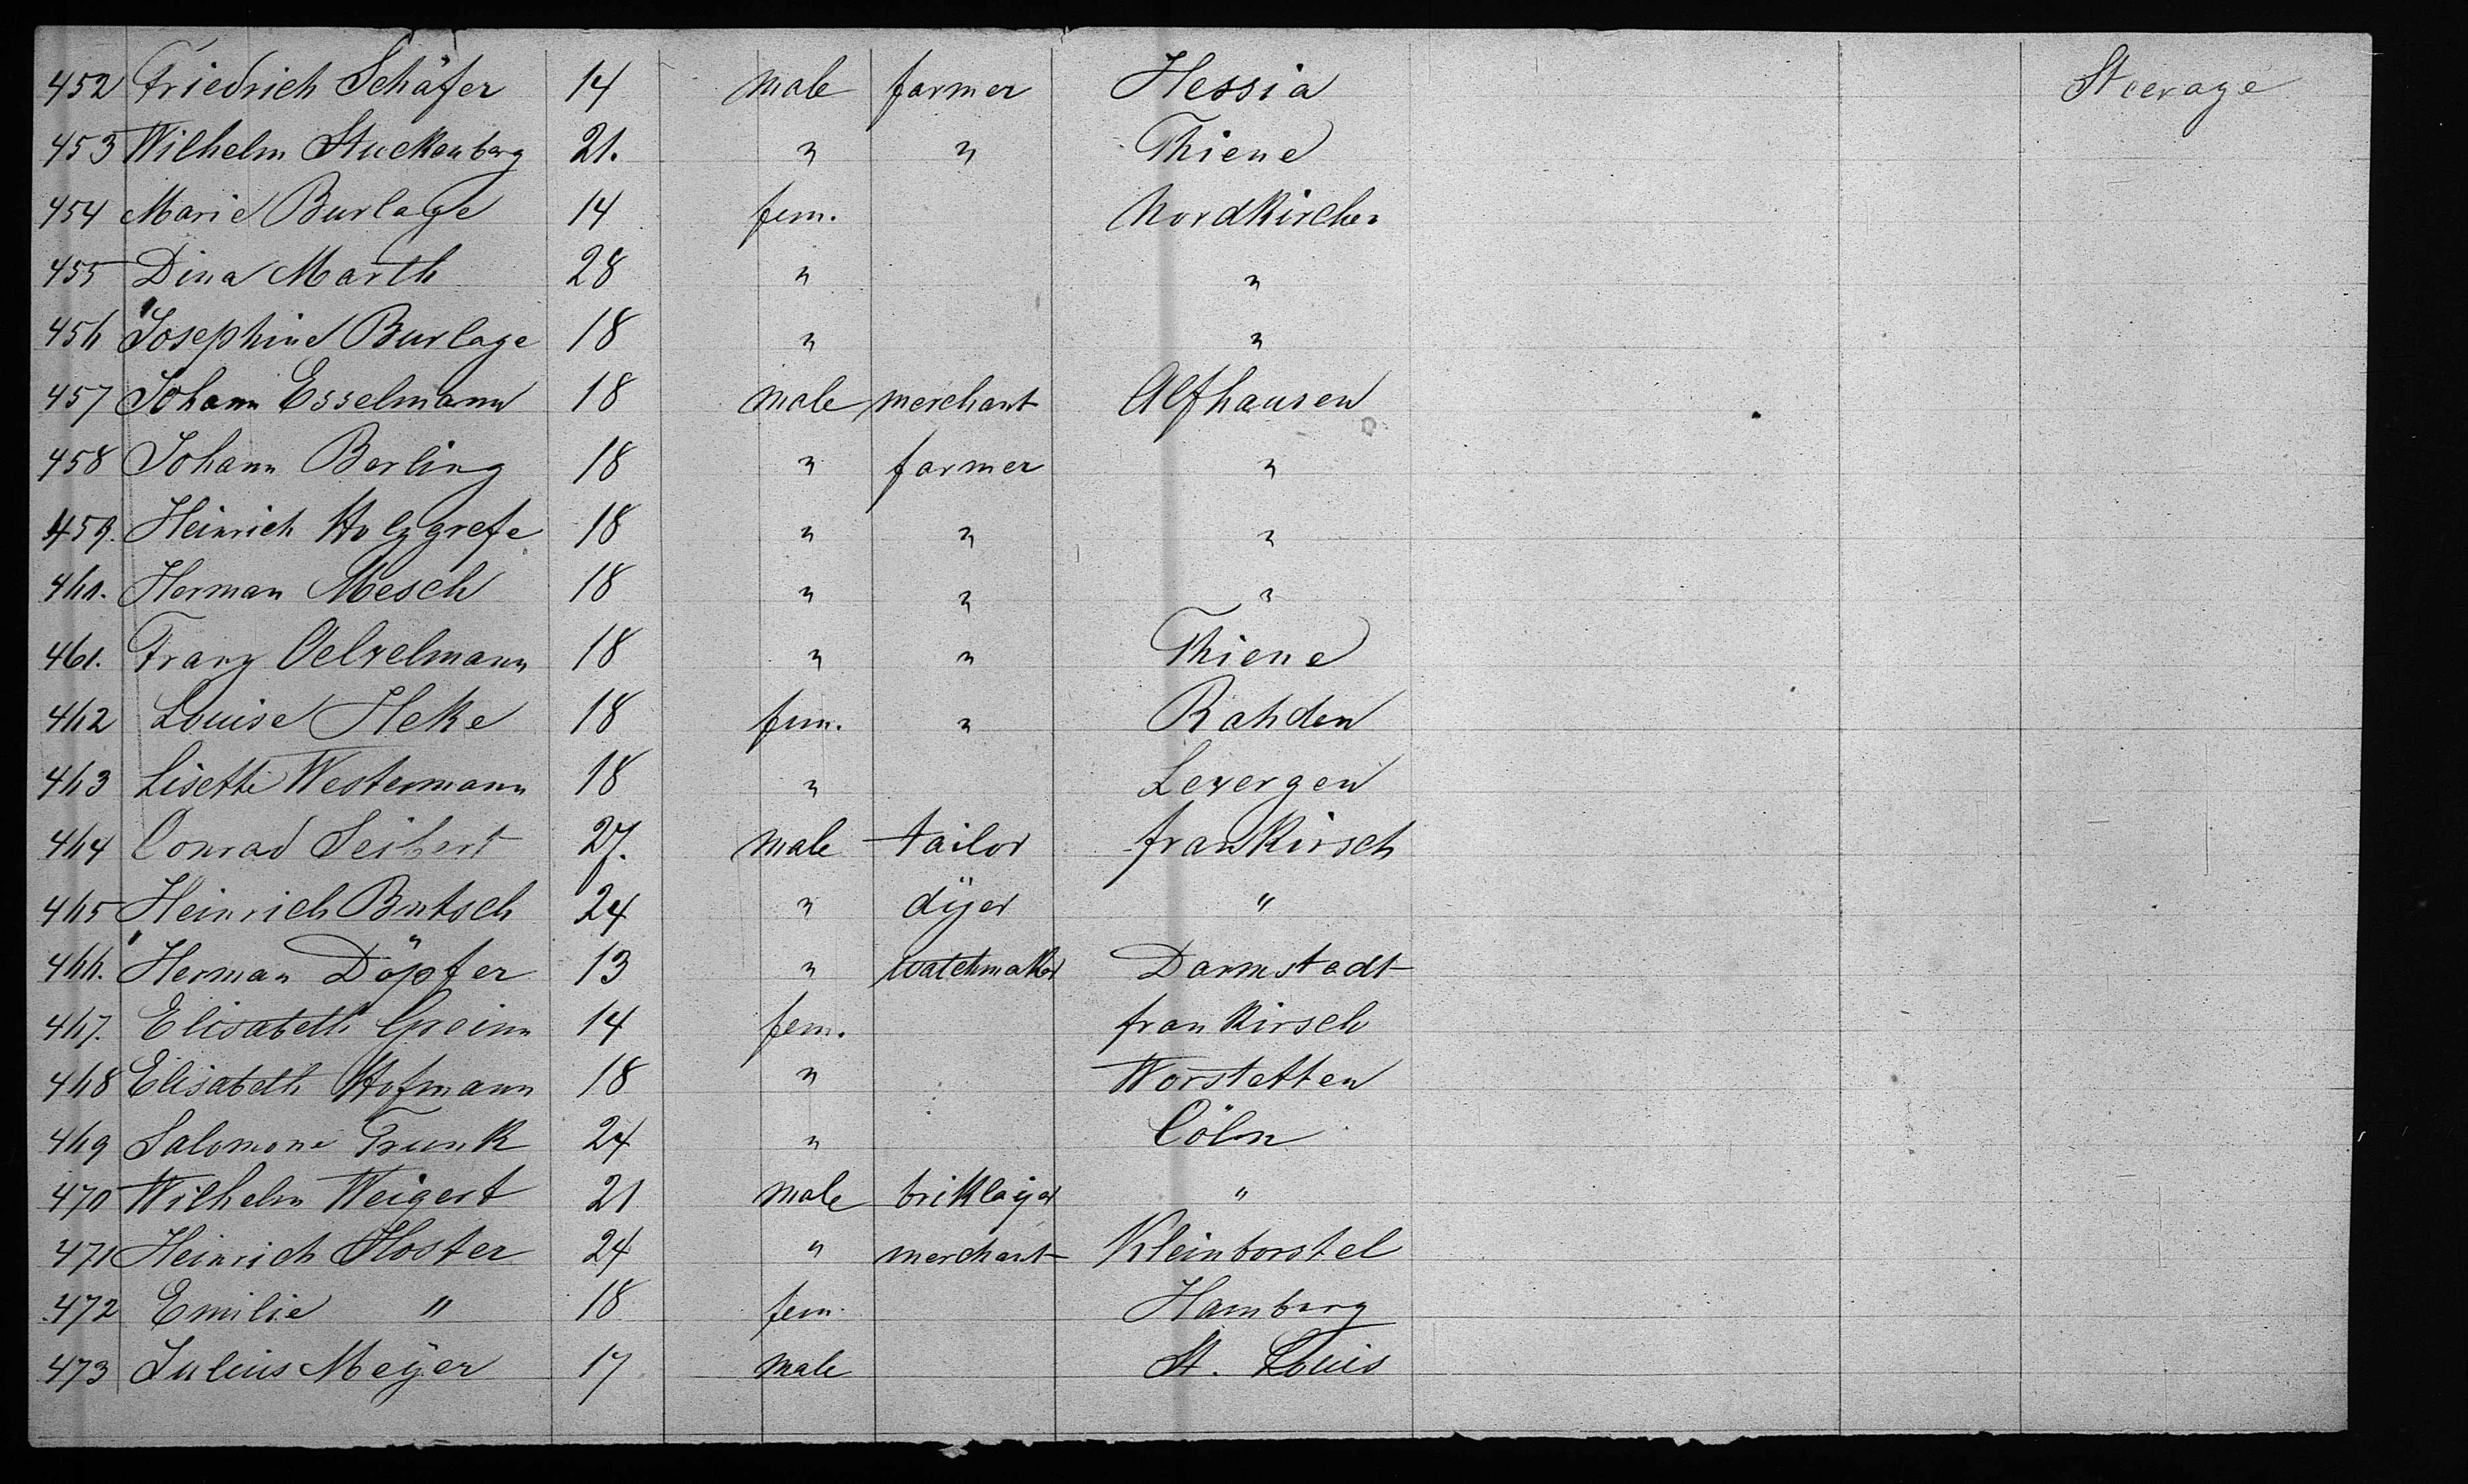 452 Friedrich Schäfer 14 male farmer Hessia Steerage
453 Wilhelm Stuckenberg 21. " " Thiene
454 Marie Burlage 14 fem. Nordkirchen
455 Dina Marth 28 " "
456 Josephine Burlage 18 " "
457 Johann Esselmann 18 male merchant Alfhausen
458 Johann Berling 18 " farmer "
459. Heinrich Holzgrefe 18 " " "
460. Herman Mesch 18 " " "
461. Franz Oelrelmann 18 " " Thiene
462 Louise Heke 18 fem. " Rahden
463 Lisette Westermann 18 " Levergen
464 Conrad Seibert 27. male tailor frankirsch
465 Heinrich Butsch 24 " dÿer "
466. Herman Döpfer 13 " watchmaker Darmstadt
467. Elisabeth Greim 14 fem. frankirsch
468 Elisabeth Hofmann 18 " Worstetten
469 Salomone Trunk 24 " Cöln
470 Wilhelm Weigert 21 male briklaÿer "
471 Heinrich Hoster 24 " merchant Kleinborstel
472 Emilie " 18 fem. Hamburg
473 Julius Meÿer 17 male St. Louis